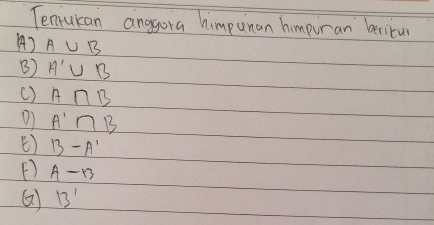 Tentukan anggota himpunan himpunan berikut
A) A ∪ B
B) A' ∪ B
C) A ∩ B
D) A' ∩ B
E) B - A'
F) A - B
G) B'